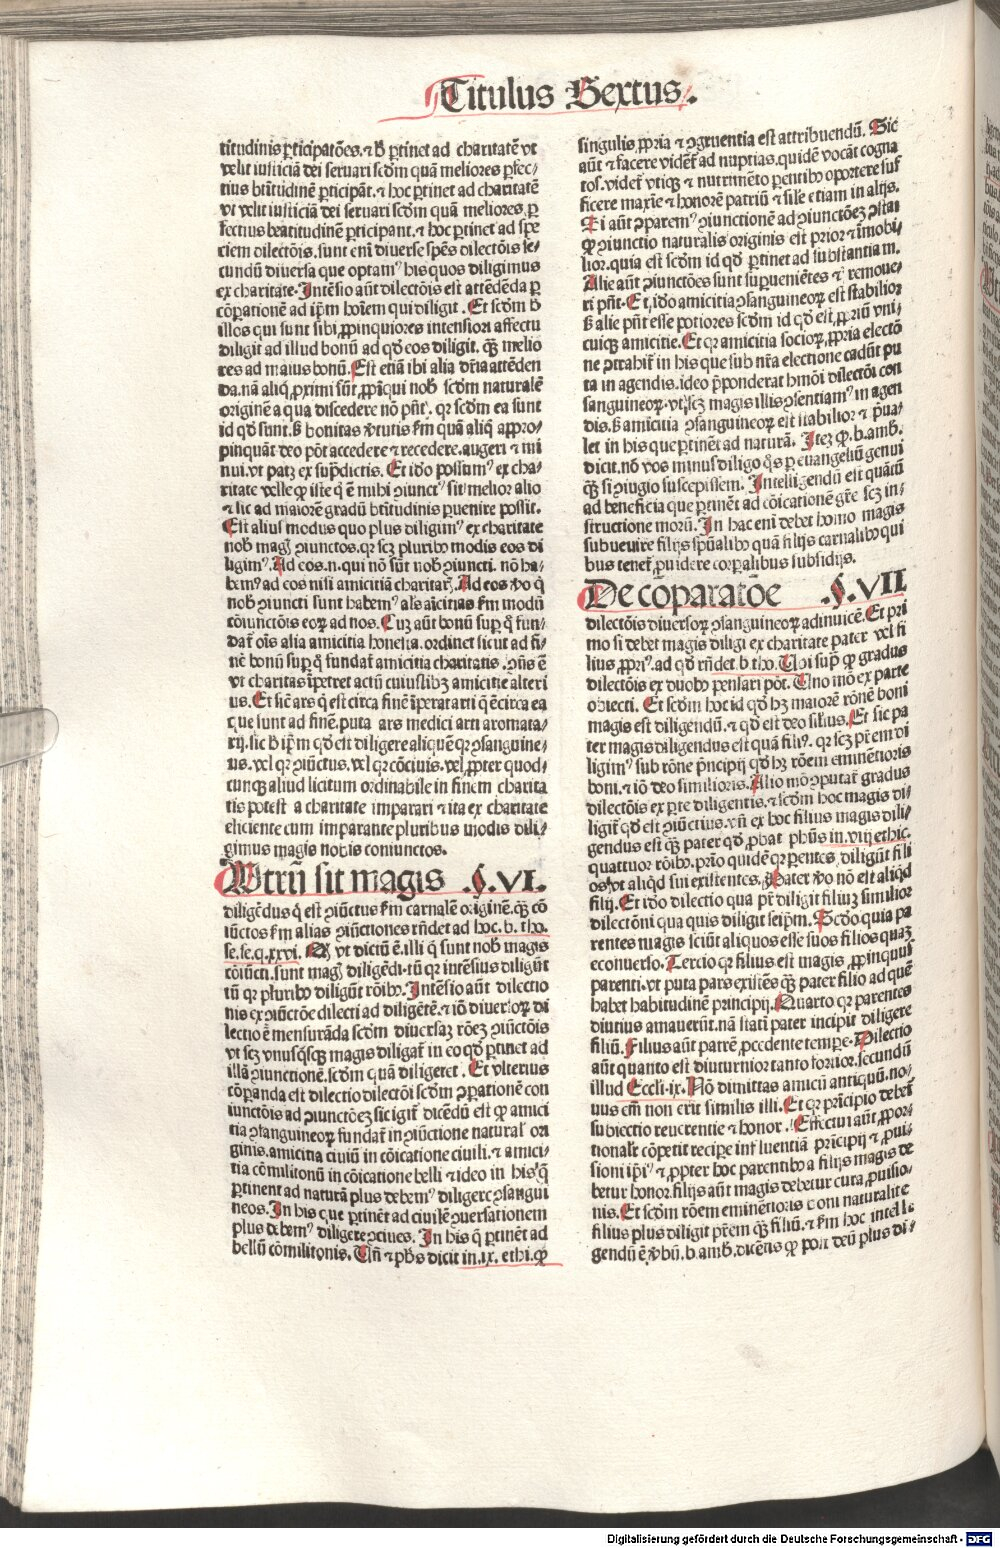 Titulus Sextus.
titudinis ꝑticipatões.⁊ ƀ ꝑtinet ad charitatẽ vt
velit iusticiã dei seruari scďm quã meliores ꝑfec⸗
tius btĩtudinẽ ꝑticipãt.⁊ hoc ꝑtinet ad charitatẽ
vt velit iusticiã dei seruari scďm quã meliores ꝑ
fectius beatitudinẽ ꝑticipant.⁊ hoc ꝑtinet ad spe
ciem dilectõis.sunt em̃ diuerse sp̃es dilectõis se⸗
cundũ diuersa que optamꝰ his quos diligimus
ex charitate.Intẽsio aũt dilectõis est attẽdẽda ꝑ
cõꝑationẽ ad ip̃m hoĩem qui diligit.Et scďm ƀ
illos qui sunt sibi ꝓpinquiores intensiori affectu
diligit ad illud bonũ ad qď eos diligit.q̃ꝫ melio
res ad maius bonũ.Est etiã ibi alia dr̃ia attẽden
da.nã aliq̃ ꝓximi sũt ꝓpĩqui nob̾ scďm naturalẽ
originẽ a qua discedere nõ pñt.qꝛ scďm ea sunt
id qď sunt.ſƀ bonitas v̾tutis ẜm quã aliq̃ appro⸗
pinquãt deo põt accedere ⁊ recedere.augeri ⁊ mi
nui.vt patꝫ ex sup̾dictis.Et iďo possumꝰ ex cha⸗
ritate velle ꝙ iste q̃ ẽ mihi ꝯiunctꝰ sit melior alio
⁊ sic ad maiorẽ gradũ btĩtudinis ꝑuenire possit.
Est alius modus quo plus diligimꝰ ex charitate
nob̾ mag̾ ꝯiunctos.qꝛ scꝫ pluribꝰ modis eos di
ligimꝰ.Ad eos.n.qui nõ sũt nob̾ ꝯiuncti.nõ ha⸗
bemꝰ ad eos nisi amicitiã charitat̾.Ad eos v̾o q̃
nob̾ ꝯiuncti sunt habemꝰ al̾s am̃icitias ẜm modũ
cõiunctõis eoꝝ ad nos.Cuꝫ aũt bonũ sup̾ q̃ fun⸗
dat̃ oĩs alia amicitia honesta.ordinet̃ sicut ad fi⸗
nẽ bonũ sup̾ q̃ fundat̃ amicitia charitatis.ꝯñs ẽ
vt charitas ĩperet actũ cuiuslibꝫ amicitie alteri
us.Et sic̃ ars q̃ est circa finẽ ĩperat arti q̃ ẽ circa ea
que sunt ad finẽ.puta ars medici arti aromata⸗
rij.sic ƀ ip̃m qď est diligere aliquẽ qꝛ ꝯsanguine⸗
us.vel qꝛ ꝯiũctus.vel qꝛ cõciuis.vel ꝓpter quod⸗
cunqꝫ aliud licitum ordinabile in finem charita
tis potest a charitate imparari ⁊ ita ex charitate
eliciente cum imparante pluribus modis dili⸗
gimus magis nobis coniunctos.
Vtrũ sit magis .§.VI.
diligẽdus q̃ est ꝯiũctus ẜm carnalẽ originẽ.q̃ꝫ cõ
iũctos ẜm alias ꝯiũctiones rñdet ad hoc.b.tho.
se.se.q.xxvi. vt dictũ ẽ.illi q̃ sunt nob̾ magis
cõiũcti.sunt mag̾ diligẽdi.tũ qꝛ intẽsius diligũt
tũ qꝛ pluribꝰ diligũt rõibꝰ.Intẽsio aũt dilectio
nis ex ꝯiũctõe dilecti ad diligẽtẽ.⁊ iõ diuersoꝝ di
lectio ẽ mensurãda scďm diuersaꝫ rõeꝫ ꝯiũctõis
vt scꝫ vnusq̃sqꝫ magis diligat̃ in eo qď ꝑtinet ad
illã ꝯiunctionẽ.scďm quã diligeret̃.Et vlterius
cõꝑanda est dilectio dilectõi scďm ꝯꝑationẽ con
iunctõis ad ꝯiunctõeꝫ sic igit̃ dicẽdũ est ꝙ amici
tia ꝯsanguineoꝝ fundat̃ in ꝯiũctione natural̾ ori
ginis.amicitia ciuiũ in cõicatione ciuili.⁊ amici⸗
tia cõmilitonũ in cõicatione belli ⁊ ideo in his q̃
ꝑtinent ad naturã plus debemꝰ diligere ꝯsangui
neos.In his que ꝑtinẽt ad ciuilẽ ꝯuersationem
plus debemꝰ diligere ꝯciues.In his q̃ ꝑtinẽt ad
bellũ cõmilitonis.Vñ ⁊ ph̾s dicit in.ix.ethi.ꝙ
singulis ꝓpria ⁊ ꝯgruentia est attribuendũ.Sic
aũt ⁊ facere vident̃ ad nuptias.quidẽ vocãt cogna
tos.videt̃ vtiqꝫ ⁊ nutrimẽto ꝑentibꝰ oportere suf
ficere maxĩe ⁊ honorẽ patriũ ⁊ sil̾e etiam in alijs.
Si aũt ꝯparemꝰ ꝯiunctionẽ ad ꝯiunctõeꝫ ꝯstat
ꝙ ꝯiunctio naturalis originis est prior ⁊ ĩmobi⸗
lior.quia est scďm id qď ꝑtinet ad substantiam.
Alie aũt ꝯiunctões sunt sup̾ueniẽtes ⁊ remoue⸗
ri pñt.Et iďo amicitia ꝯsanguineoꝝ est stabilior
ſƀ alie pñt esse potiores scďm id qď est ꝓpriũ vni⸗
cuiqꝫ amicitie.Et qꝛ amicitia socioꝝ ꝓpria electõ
ne ꝯtrahit̃ in his que sub nr̃a electione cadũt pu
ta in agendis.ideo p̾ponderat hmõi dilectõi con
sanguineoꝝ.vt scꝫ magis illis ꝯsentiamꝰ in agen
dis.ſƀ amicitia ꝯsanguineoꝝ est stabilior ⁊ p̾ua⸗
let in his que ꝑtinẽt ad naturã.Iteꝫ ꝙ.b.amb.
dicit.nõ vos minus diligo q̃s ꝑ euangeliũ genui
q̃ꝫ si ꝯiugio suscepissem.Intelligendũ est quãtũ
ad beneficia que ꝑtinẽt ad cõicationẽ gr̃e scꝫ in⸗
structione morũ.In hac em̃ debet homo magis
subuenire filijs sp̃ualibꝰ quã filijs carnalibꝰ qui
bus tenet̃ ꝓuidere corꝑalibus subsidijs.
De cõparatõe .§.VII
dilectõis diuersoꝝ ꝯsanguineoꝝ adinuicẽ.Et pri
mo si debet magis diligi ex charitate pater vel fi
lius ꝓpriꝰ.ad qď rñdet.b.tho.Vbi sup̾ ꝙ gradus
dilectõis ex duobꝰ pensari põt.Vno mõ ex parte
obiecti.Et scďm hoc id qď hꝫ maiorẽ rõnẽ boni
magis est diligendũ.⁊ qď est deo sil̾ius.Et sic pa
ter magis diligendus est quã filiꝰ.qꝛ scꝫ pr̃em di
ligimꝰ sub rõne p̾ncipij qď hꝫ rõem eminẽtioris
boni.⁊ iõ deo similioris.Alio mõ ꝯputat̃ gradus
dilectõis ex ꝑte diligentis.⁊ scďm hoc magis di⸗
ligit̃ qď est ꝯiũctius.vñ ex hoc filius magis dili⸗
gendus est q̃ꝫ pater qď ꝓbat phũs in.viij ethic.
quattuor rõibꝰ.prĩo quidẽ qꝛ ꝑentes diligũt fili
os vt aliqď sui existentes.Pater v̾o nõ est aliqď
filij.Et iďo dilectio qua pr̃ diligit filiuꝫ similior
dilectõni qua quis diligit seip̃m.Scďo quia pa
rentes magis sciũt aliquos esse suos filios quaꝫ
econuerso.Tercio qꝛ filius est magis ꝓpinquus
parenti.vt puta pars existẽs q̃ꝫ pater filio ad quẽ
habet habitudinẽ principij.Quarto qꝛ parentes
diutius amauerũt.nã statĩ pater incipit diligere
filiũ.Filius aũt patrẽ ꝓcedente temp̾e.Dilectio
aũt quanto est diuturnior tanto fortior.secundũ
illud Eccli.ix.Nõ dimittas amicũ antiquũ.no⸗
uus em̃ non erit similis illi.Et qꝛ pr̃icipio debet̃
subiectio reuerentie ⁊ honor.Effectui aũt ꝓpor⸗
tional̾r cõpetit recipe influentiã pr̃icipij ⁊ ꝓui⸗
sioni ip̃iꝰ ⁊ ꝓpter hoc parentibꝰ a filijs magis de
betur honor.filijs aũt magis debetur cura ꝓuisio⸗
nis.Et scďm rõem eminẽtioris boni naturalit̃e
filius plus diligit pr̃em q̃ꝫ filiũ.⁊ ẜm hoc intelli
gendũ ẽ v̾bũ.b.amb.dicẽtis ꝙ post deũ plus di⸗
Digitalisierung gefördert durch die Deutsche Forschungsgemeinschaft - DFG